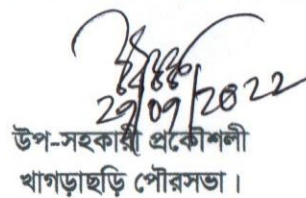 29/09/2022
উপ-সহকারী প্রকৌশলী
খাগড়াছড়ি পৌরসভা।